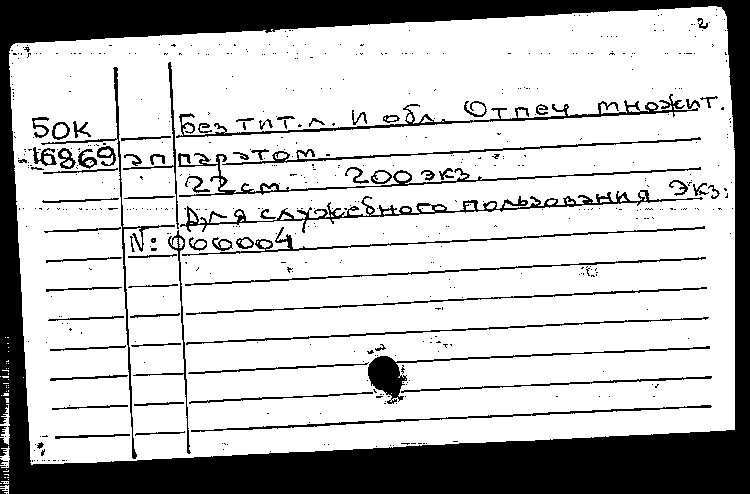 2
50К Без тит.л. и обл. Отпеч. множит.
16869 аппаратом.
22 см. 200 экз.
Для служебного пользования Экз.
N: 000004